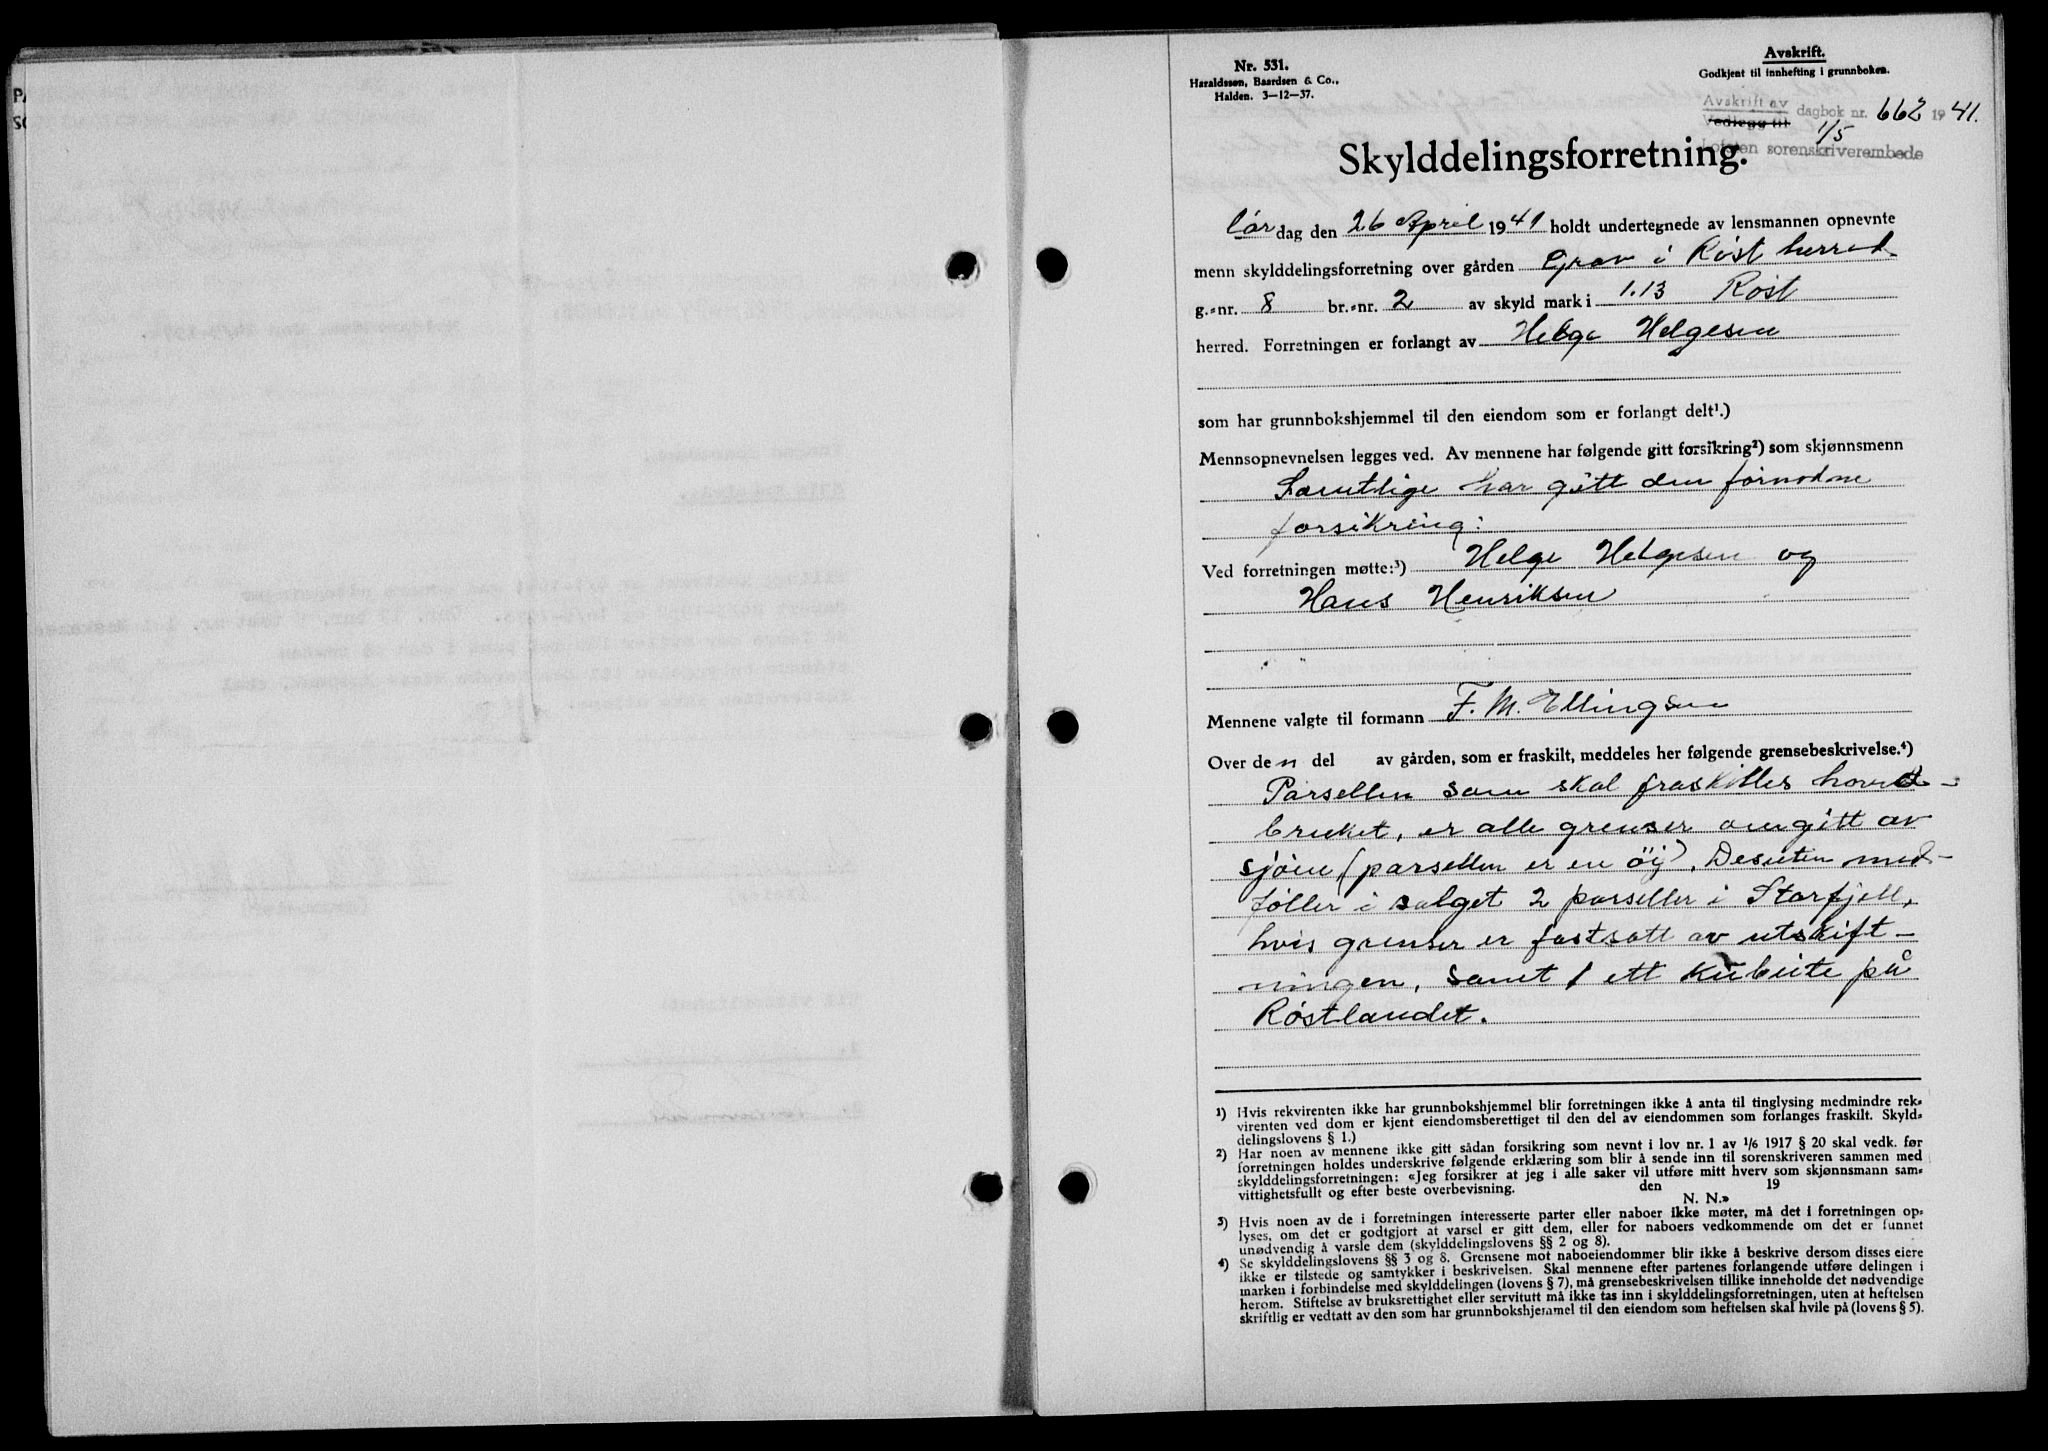 Nr. 531.
Haraldssen, Baardsen & Co.,
Halden. 3—12—37.
Avskrift.
Godkjent til innhefting i grunnboken.
Avskrift av
Vedlegg til
dagbok nr. 662 1941.
1/5
Lofoten sorenskriverembede
Skylddelingsforretning.
lør dag den 26 April 1941 holdt undertegnede av lensmannen opnevnte
menn skylddelingsforretning over gården Grav i Røst herred
g.=nr. 8 br.=nr. 2 av skyld mark i 1.13 Røst
herred. Forretningen er forlangt av Helge Helgesen
som har grunnbokshjemmel til den eiendom som er forlangt delt¹.)
Mennsopnevnelsen legges ved. Av mennene har følgende gitt forsikring²) som skjønnsmenn
Samtlige har gitt den fornødne
forsikring.
Ved forretningen møtte:³) Helge Helgesen og
Hans Henriksen
Mennene valgte til formann F. M. Ellingsen
Over den del av gården, som er fraskilt, meddeles her følgende grensebeskrivelse.⁴)
Parsellen som skal fraskilles hoved-
bruket, er alle grenser omgitt av
sjøen (parsellen er en öy). Desuten med-
føller i salget 2 parseller i Storfjell,
hvis grenser er fastsatt av utskift-
ningen, samt 1 ett kubeite på
Røstlandet.
1) Hvis rekvirenten ikke har grunnbokshjemmel blir forretningen ikke å anta til tinglysing medmindre rek=
virenten ved dom er kjent eiendomsberettiget til den del av eiendommen som forlanges fraskilt. Skyld=
delingslovens § 1.)
2) Har noen av mennene ikke gitt sådan forsikring som nevnt i lov nr. 1 av 1/6 1917 § 20 skal vedk. før
forretningen holdes underskrive følgende erklæring som blir å sende inn til sorenskriveren sammen med
skylddelingsforretningen: «Jeg forsikrer at jeg i alle saker vil utføre mitt hverv som skjønnsmann sam=
vittighetsfullt og efter beste overbevisning. den 19
N. N.»
3) Hvis noen av de i forretningen interesserte parter eller naboer ikke møter, må det i forretningen op=
lyses, om det er godtgjort at varsel er gitt dem, eller for naboers vedkommende om det er funnet
unødvendig å varsle dem (skylddelingslovens §§ 2 og 8).
4) Se skylddelingslovens §§ 3 og 8. Grensene mot naboeiendommer blir ikke å beskrive dersom disses eiere
ikke er tilstede og samtykker i beskrivelsen. Skal mennene efter partenes forlangende utføre delingen i
marken i forbindelse med skylddelingen (lovens § 7), må grensebeskrivelsen tillike inneholde det nødvendige
herom. Stiftelse av bruksrettighet eller servitutt må ikke tas inn i skylddelingsforretningen, uten at heftelsen
skriftlig er vedtatt av den som har grunnbokshjemmel til den eiendom som heftelsen skal hvile på (lovens § 5).